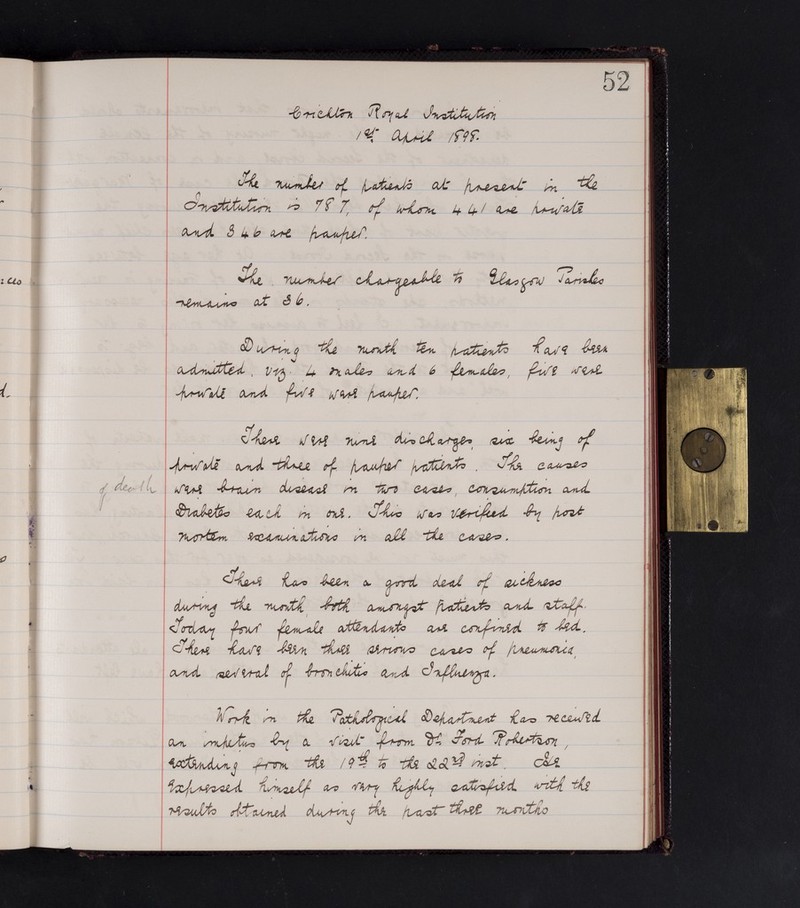 52
Crichton Royal Institution
1st April 1898.
The number of patients at present in the
Institution is 787, of whom 441 are private
and 346 are pauper.
The number chargeable to Glasgow Parishes
remains at 36.
During the month ten patients have been
admitted, viz 4 males and 6 females, five were
private and five were pauper.
There were nine discharges, six being of
private and three of pauper patients. The causes
of death
were brain disease in two cases, consumption and
Diabetes each in one. This was verified by post
mortem examinations in all the cases.
There has been a good deal of sickness
during the month both amongst patients and staff.
Today four female attendants are confined to bed.
There have been three serious cases of pneumonia,
and several of bronchitis and Influenza.
Work in the Pathological Department has received
an impetus by a visit from Dr Ford Robertson,
extending from the 19th to the 22nd inst. He
expressed himself as very highly satisfied with the
results obtained during the past three months